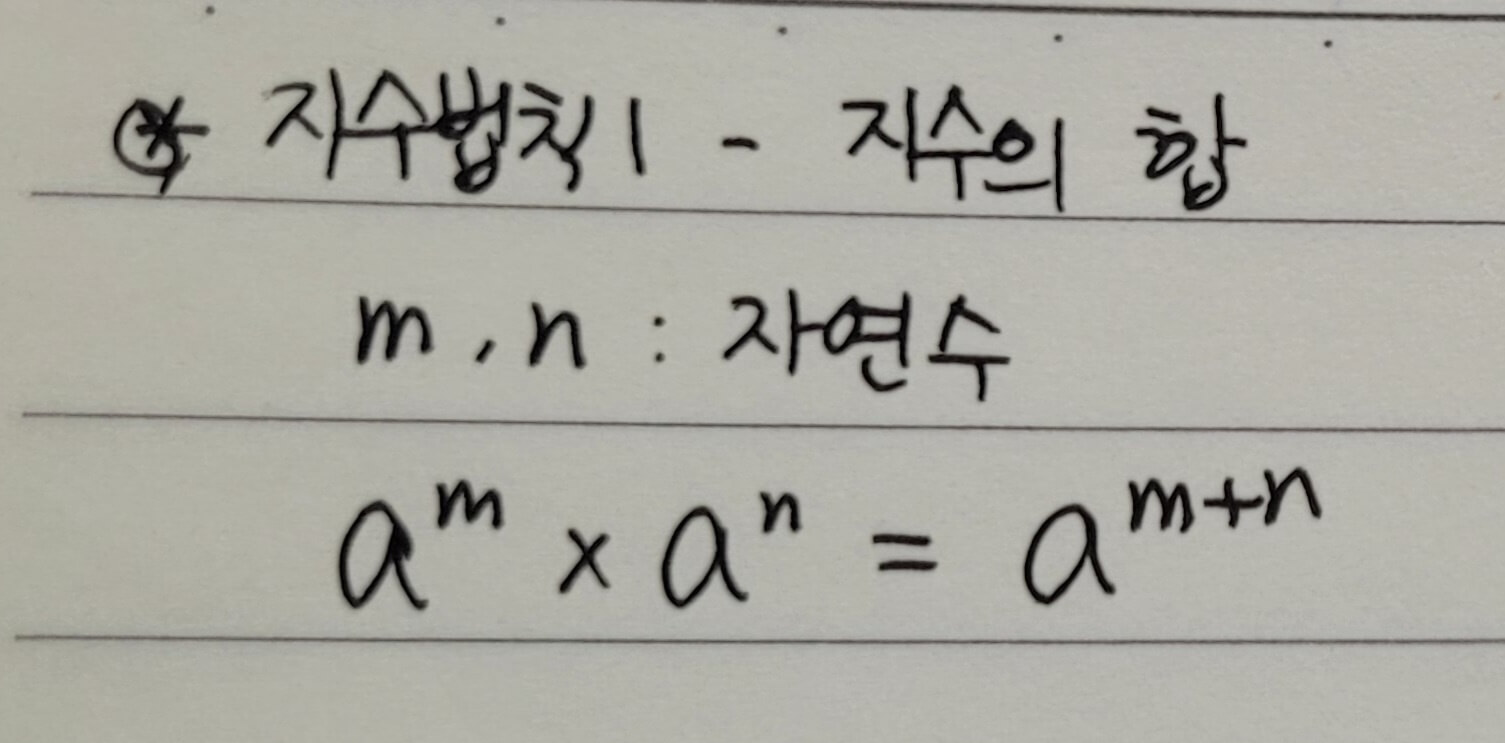 ⊛ 지수법칙1 - 지수의 합
m, n : 자연수
aᵐ × aⁿ = aᵐ⁺ⁿ